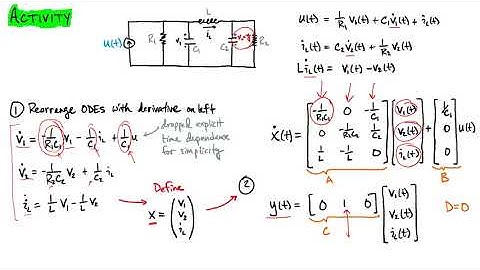 ACTIVITY
L
u(t) R₁ v₁ C₁ i_L C₂ v₂=y R₂
u(t) = 1/R₁ v₁(t) + C₁v̇₁(t) + i_L(t)
i_L(t) = C₂v̇₂(t) + 1/R₂ v₂(t)
Li̇_L(t) = v₁(t) - v₂(t)
① Rearrange ODEs with derivative on left
v̇₁ = -1/(R₁C₁) v₁ - 1/C₁ i_L + 1/C₁ u
dropped explicit
time dependence
for simplicity
v̇₂ = -1/(R₂C₂) v₂ + 1/C₂ i_L
i̇_L = 1/L v₁ - 1/L v₂
Define
x = (v₁ v₂ i_L)
②
ẋ(t) = [-1/(R₁C₁) 0 -1/C₁; 0 -1/(R₂C₂) 1/C₂; 1/L -1/L 0] [v₁(t) v₂(t) i_L(t)] + [1/C₁ 0 0] u(t)
A B
y(t) = [0 1 0] [v₁(t) v₂(t) i_L(t)] D=0
C